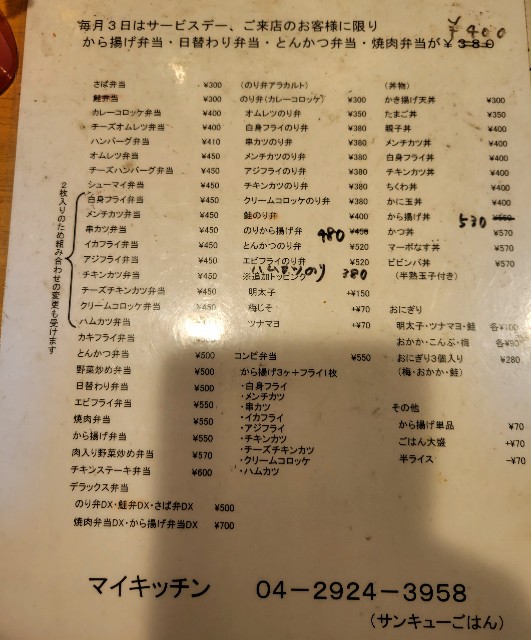 毎月３日はサービスデー、ご来店のお客様に限り
から揚げ弁当・日替わり弁当・とんかつ弁当・焼肉弁当が¥380 ¥400
さば弁当 ¥300
鮭弁当 ¥300
カレーコロッケ弁当 ¥350
チーズオムレツ弁当 ¥400
ハンバーグ弁当 ¥410
オムレツ弁当 ¥450
チーズハンバーグ弁当 ¥450
シューマイ弁当 ¥450
２枚入りのため組み合わせの変更も受けます
白身フライ弁当 ¥450
メンチカツ弁当 ¥450
串カツ弁当 ¥450
イカフライ弁当 ¥450
アジフライ弁当 ¥450
チキンカツ弁当 ¥450
チーズチキンカツ弁当 ¥450
クリームコロッケ弁当 ¥450
ハムカツ弁当
カキフライ弁当
とんかつ弁当 ¥500
野菜炒め弁当 ¥500
日替わり弁当 ¥500
エビフライ弁当 ¥550
焼肉弁当 ¥550
から揚げ弁当 ¥550
肉入り野菜炒め弁当 ¥570
チキンステーキ弁当 ¥600
デラックス弁当
のり弁DX・鮭弁DX・さば弁DX ¥500
焼肉弁当DX・から揚げ弁当DX ¥700
(のり弁アラカルト)
のり弁(カレーコロッケ) ¥300
オムレツのり弁 ¥350
白身フライのり弁 ¥380
串カツのり弁 ¥380
メンチカツのり弁 ¥380
アジフライのり弁 ¥380
チキンカツのり弁 ¥380
クリームコロッケのり弁 ¥380
鮭のり弁 ¥400
のりから揚げ弁 480 ¥450
とんかつのり弁 ¥520
エビフライのり弁 ¥520
ハムカツのり 380
※追加トッピング
明太子 +¥150
梅じそ +¥70
ツナマヨ +¥70
コンビ弁当 ¥550
から揚げ3ヶ＋フライ1枚
・白身フライ
・メンチカツ
・串カツ
・イカフライ
・アジフライ
・チキンカツ
・チーズチキンカツ
・クリームコロッケ
・ハムカツ
(丼物)
かき揚げ天丼 ¥300
たまご丼 ¥350
親子丼 ¥400
メンチカツ丼 ¥400
白身フライ丼 ¥400
チキンカツ丼 ¥400
ちくわ丼 ¥400
かに玉丼 ¥400
から揚げ丼 530 ¥550
かつ丼 ¥570
マーボなす丼 ¥570
ビビンバ丼 ¥570
(半熟玉子付き)
おにぎり
明太子・ツナマヨ・鮭 各¥100
おかか・こんぶ・梅 各¥90
おにぎり3個入り ¥280
(梅・おかか・鮭)
その他
から揚げ単品 ¥70
ごはん大盛 +¥70
半ライス -¥70
マイキッチン ０４－２９２４－３９５８
(サンキューごはん)